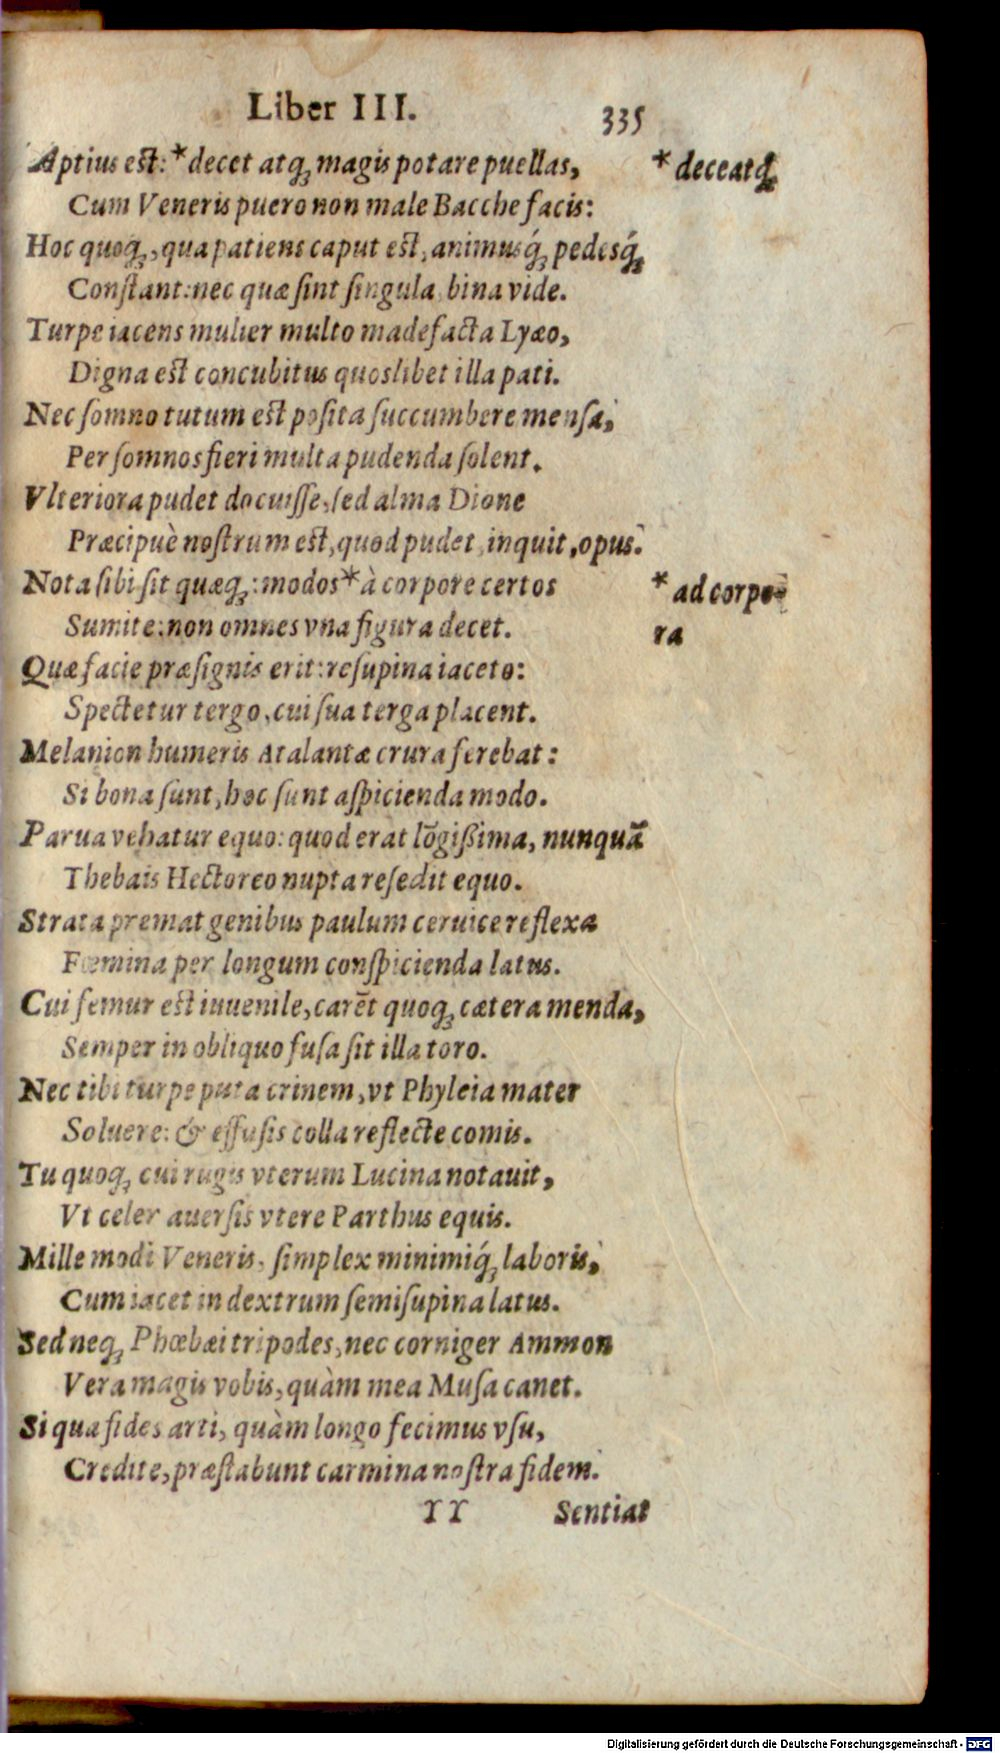 Liber III. 335
Aptius est:*decet atq́ꝫ magis potare puellas, * deceatqꝫ
Cum Veneris puero non male Bacche facis:
Hoc quoqꝫ, qua patiens caput est, animusq́ꝫ pedesq́ꝫ
Constant: nec quæ sint singula, bina vide.
Turpe iacens mulier multo madefacta Lyæo,
Digna est concubitus quoslibet illa pati.
Nec somno tutum est posita succumbere mensa,
Per somnos fieri multa pudenda solent.
Vlteriora pudet docuisse, sed alma Dione
Præcipuè nostrum est, quod pudet, inquit, opus.
Nota sibi sit quæqꝫ: modos* à corpore certos * ad corpo-
Sumite: non omnes vna figura decet. ra
Quæ facie præsignis erit: resupina iaceto:
Spectetur tergo, cui sua terga placent.
Melanion humeris Atalantæ crura ferebat:
Si bona sunt, hoc sunt aspicienda modo.
Parua vehatur equo: quod erat lōgißima, nunquā
Thebais Hectoreo nupta resedit equo.
Strata premat genibus paulum ceruice reflexa
Fœmina per longum conspicienda latus.
Cui femur est iuuenile, carēt quoqꝫ cætera menda,
Semper in obliquo fusa sit illa toro.
Nec tibi turpe puta crinem, vt Phyleia mater
Soluere: & effusis colla reflecte comis.
Tu quoqꝫ cui rugis vterum Lucina notauit,
Vt celer auersis vtere Parthus equis.
Mille modi Veneris, simplex minimiq́ꝫ laboris,
Cum iacet in dextrum semisupina latus.
Sed neqꝫ Phœbæi tripodes, nec corniger Ammon
Vera magis vobis, quàm mea Musa canet.
Si qua fides arti, quàm longo fecimus vsu,
Credite, præstabunt carmina nostra fidem.
YY Sentiat
Digitalisierung gefördert durch die Deutsche Forschungsgemeinschaft - DFG